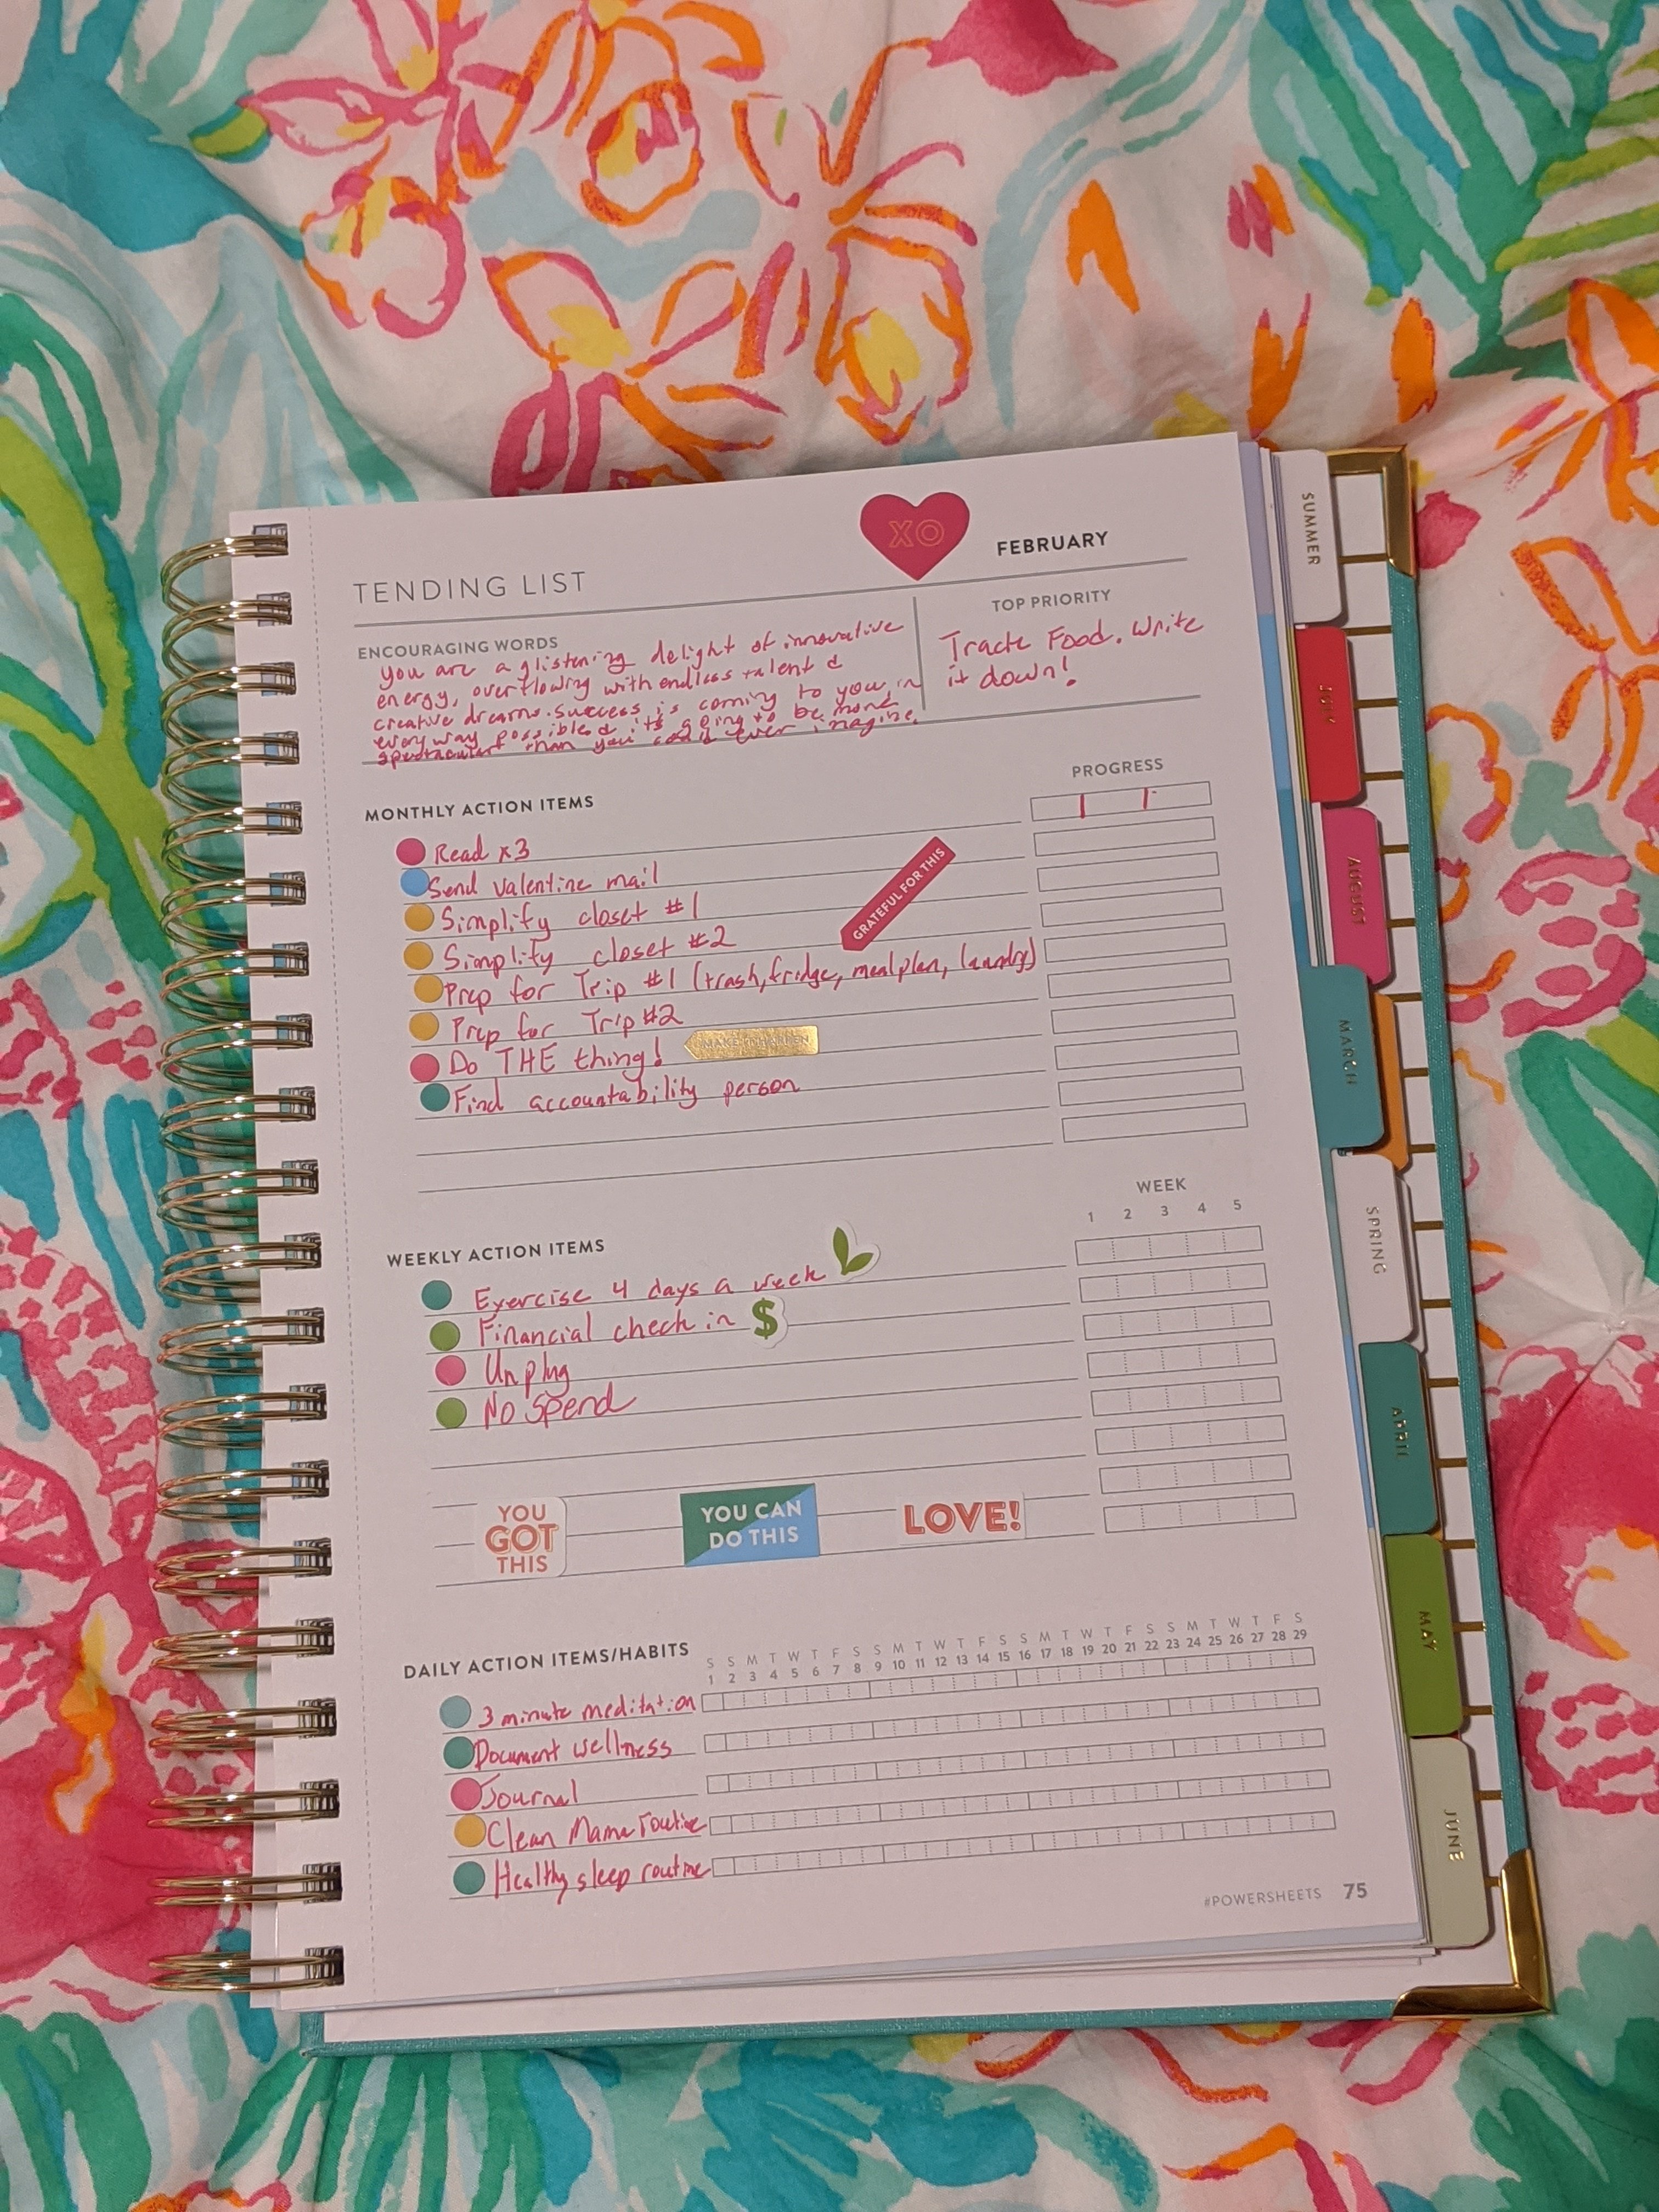 XO
FEBRUARY
TENDING LIST
ENCOURAGING WORDS
you are a glistening delight of innovative
energy, overflowing with endless talent &
creative dreams. Success is coming to you, in
every way possible & it's going to be more
spectacular than you could ever imagine.
TOP PRIORITY
Track Food. Write
it down!
PROGRESS
MONTHLY ACTION ITEMS
Read x3
Send valentine mail
Simplify closet #1
Simplify closet #2
GRATEFUL FOR THIS
Prep for Trip #1 (trash, fridge, meal plan, laundry)
Prep for Trip #2
Do THE thing!
MAKE IT HAPPEN
Find accountability person
WEEK
1 2 3 4 5
WEEKLY ACTION ITEMS
Exercise 4 days a week
Financial check in $
Unplug
No Spend
YOU
GOT
THIS
YOU CAN
DO THIS
LOVE!
DAILY ACTION ITEMS/HABITS
S S M T W T F S S M T W T F S S M T W T F S S M T W T F S
1 2 3 4 5 6 7 8 9 10 11 12 13 14 15 16 17 18 19 20 21 22 23 24 25 26 27 28 29
3 minute meditation
Document wellness
Journal
Clean Mama routine
Healthy sleep routine
#POWERSHEETS 75
SUMMER
JULY
AUGUST
MARCH
SPRING
APRIL
MAY
JUNE